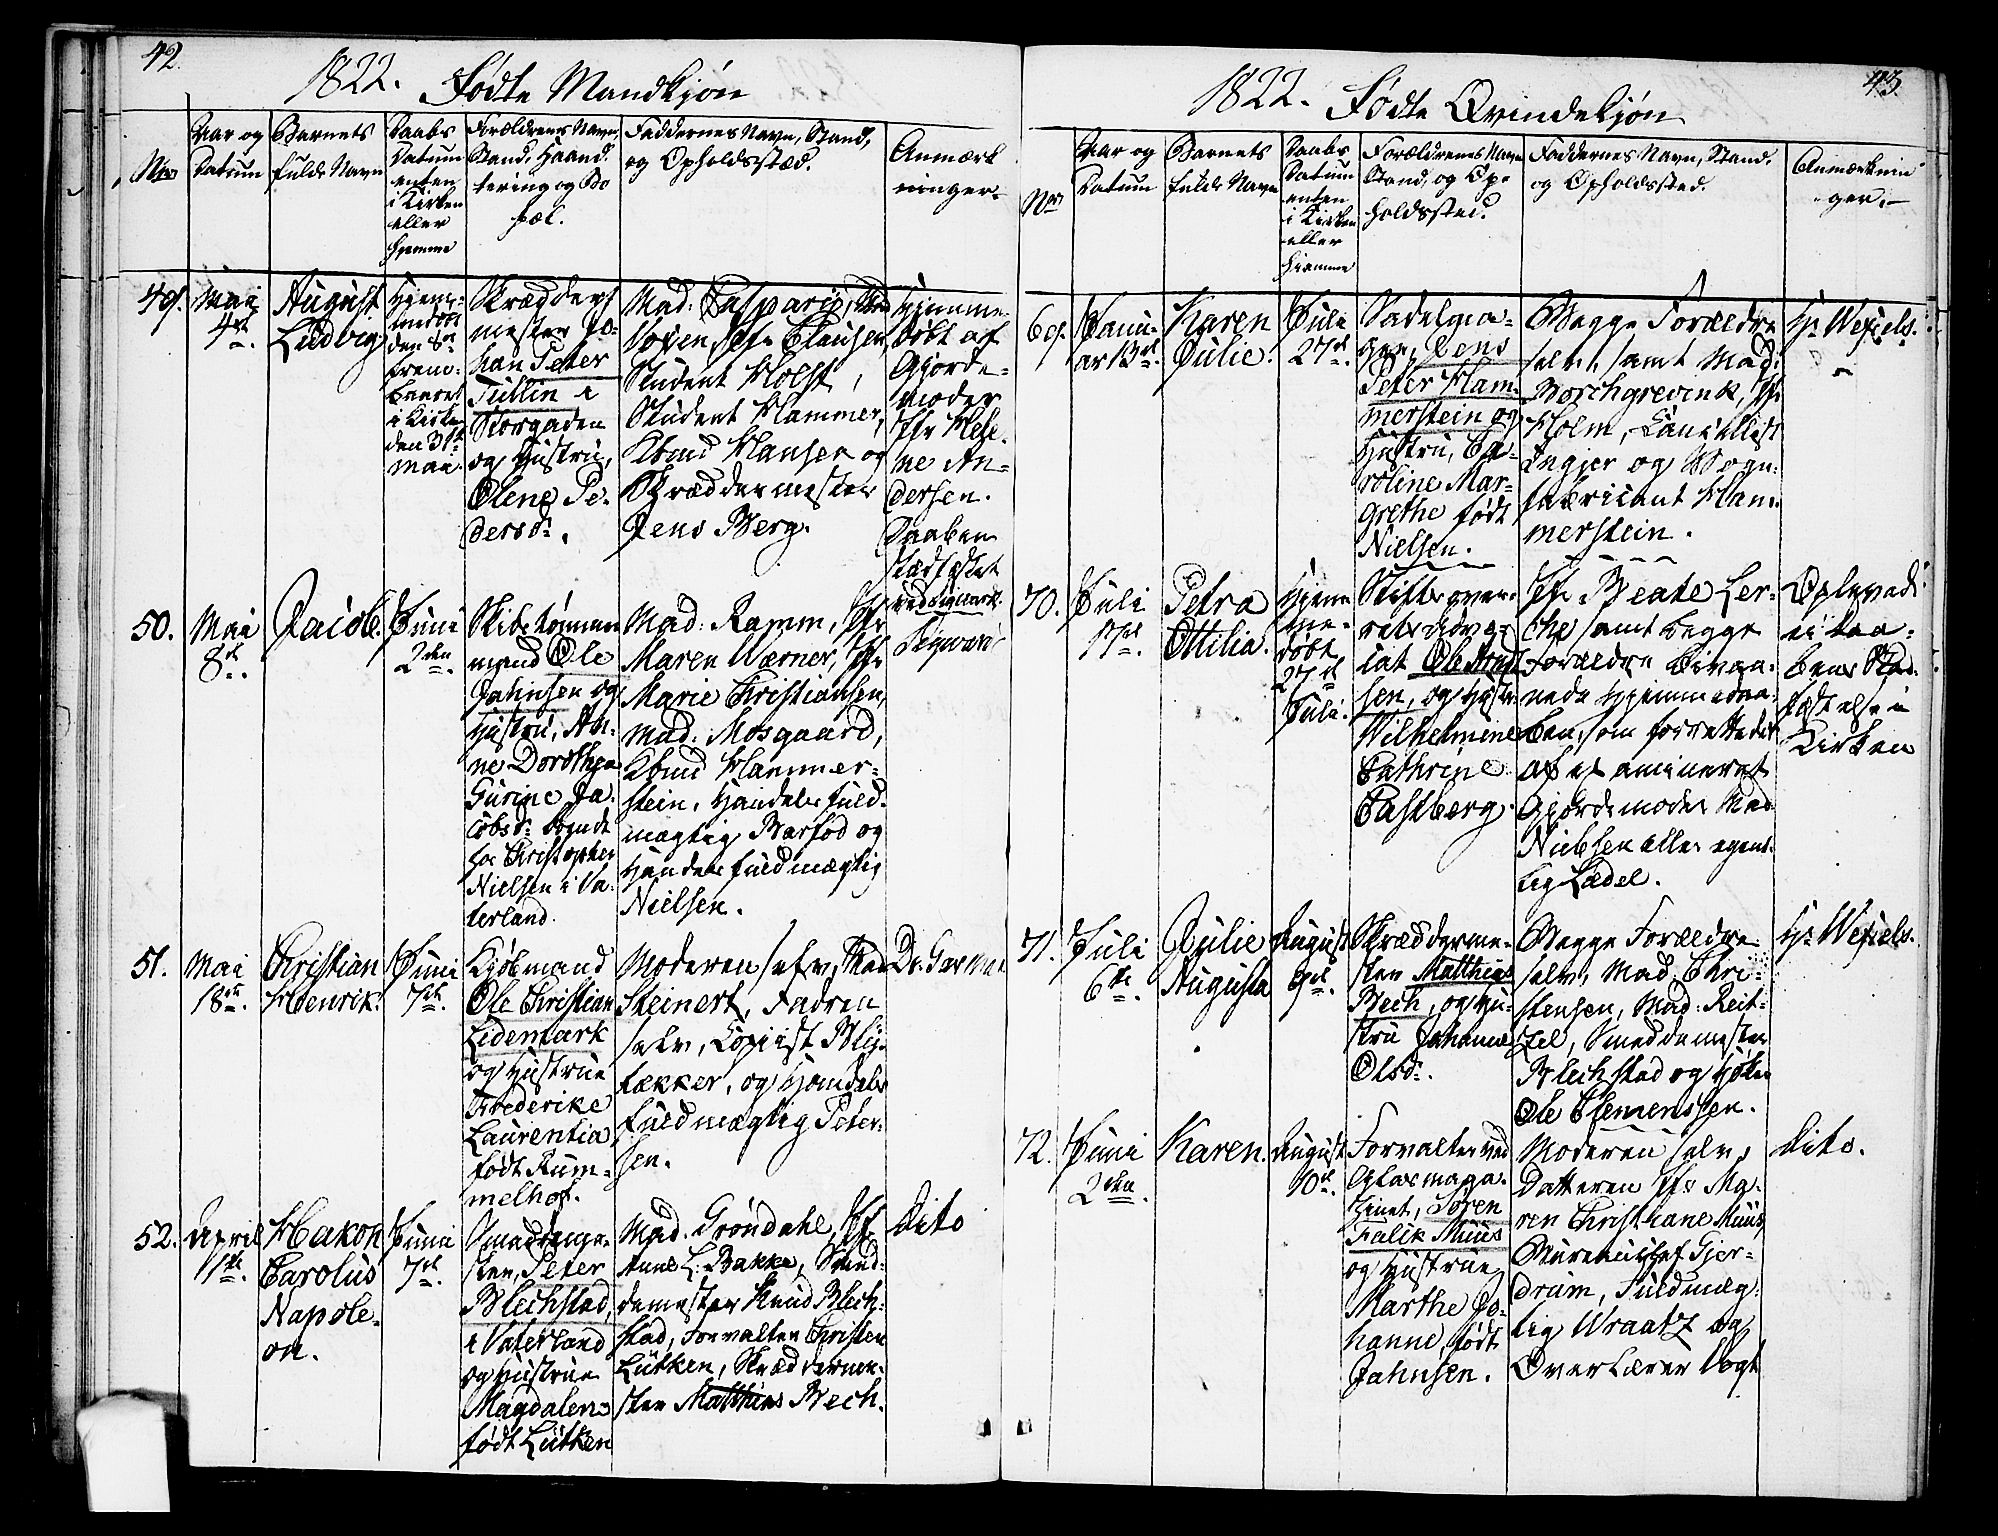 42.
1822. Fødte Mandkjøn
Nro
Aar og
Datum
Barnets
fulde Navn
Daabs
Datum
enten
i Kirken
eller
hjemme
Forældrenes Navn,
Stand, Haand-
tering og Bo
pæl.
Faddernes Navn, Stand,
og Opholdssted.
Anmærk
ninger.
49.
Mai
4de
August
Ludvig
Hjem-
den 8de
frem-
baaret
i Kirke
den 31te
Mai.
Skrædder
mester Jo-
han Peter
Tullin i
Storgaden
og Hustru,
Olene Pe-
dersd:.
Mad: Casparij,
Voxen, Jfr Clausen,
Student Holst,
Student Hammer,
Hansen og
Skræddermester
Jens Berg.
Hjemme-
døbt af
Gjorde-
moder
Jfr Hele-
ne An-
dersen.
Daaben
stadfæstet
50.
Mai
8de.
Jacob.
Juni
2den.
Skibstømmer
mand Ole
Jahnsen og
Hustru, An-
ne Dorothea
Gurine Ja-
cobsd:
hos Christopher
Nielsen i Va-
terland.
Mad: Ramm, Jfr
Maren Wærner, Jfr
Marie Christiansen,
Mad: Mosgaard,
Hammer-
stein, Handels fuld-
mægtig Barfod og
Handels fuldmægtig
Nielsen.
51.
Mai
18de.
Christian
Henrik.
Juni
7de.
Kjøbmand
Ole Christian
Lidemark
og Hustrue
Frederike
Laurentia
født Rum-
melhof.
Moderen selv, Mad
Steinert, Fadren
selv, Copiist Bly-
tækker, og Handels
fuldmægtig Peter-
sen.
Dr. Garman
52.
April
11te.
Hakon
Carolus
Napole-
on.
Juni
7de.
Smedmes-
ter, Peter
Blechstad,
i Vaterland
og Hustrue
Magdalene
født Lütken
Mad. Grøndahl, Jf.
Anne L. Bakke, Smed-
demester Knud Blech-
stad, Forvalter Christen
Lütken, Skræddermes-
ter Matthias Bech.
Dito
43.
1822. Fødte Qvindekjøn
Nro
Aar og
Datum
Barnets
fulde Navn
Daabs
Datum
enten
i Kirken
eller
hjemme
Forældrenes Navn
Stand, og Op-
holdssted.
Faddernes Navn, Stand,
og Opholdssted.
Anmærknin
ger.
69.
Janu-
ar 13de.
Karen
Julie.
Juli
27de.
Sadelma-
ger, Jens
Peter Ham-
merstein og
Hustru, Ca-
roline Mar-
grethe født
Nielsen.
Begge Forældre
selv, samt Mad:
Borchgrevink, Jfr
Holm, Cancellist
Ingjer og Vogn-
fabricant Ham-
merstein.
Hr Wexels.
70.
Juli
17de.
Petra
Ottilia.
Hjem
me-
døbt
27de
Juli.
Stiftsover-
rets
Ole
sen, og Hustr
Wilhelmine
Cathrine
Castberg.
Jfr. Beate Ler-
che samt begge
Forældre
nede Hjemmedaa-
ben, som forrettedes
af examineret
Gjordemoder Mad
Nielsen eller egent-
lig Lædel.
Oplevede
ei Daa-
bens Stad-
fæstelse i
Kirken
71.
Juli
6te.
Julie
Augusta
August
9de.
Skrædderme-
ster Matthias
Bech, og Hu-
stru Johanne
Olsd:.
Begge Forældre
selv, Mad: Chri-
stensen, Mad: Reit-
zel, Smeddemester
Blechstad og Høker
Ole Clemenssen.
Hr Wexels.
72.
Juni
2den.
Karen.
August
10de.
Forvalter ved
Glasmaga-
zinet, Søren
Falck Muus
og Hustrue
Marthe Jo-
hanne, født
Jahnsen.
Moderen selv,
Datteren Jfr Ma-
ren Christiane Muus,
Bureauchef Gjer-
drum, Fuldmæg-
tig Wraatz og
Overlærer Vogt
Dito.